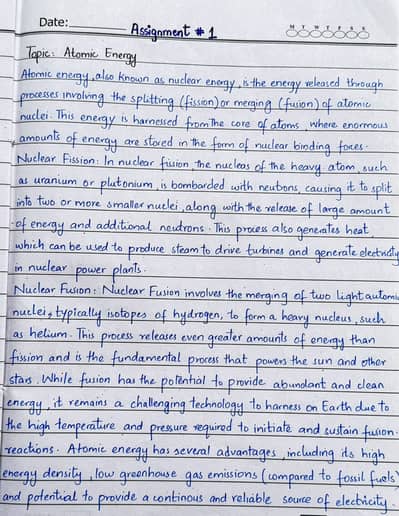 Date:
M T W T F S S
Assignment # 1
Topic: Atomic Energy
Atomic energy, also known as nuclear energy, is the energy released through
processes involving the splitting (fission) or merging (fusion) of atomic
nuclei. This energy is harnessed from the core of atoms, where enormous
amounts of energy are stored in the form of nuclear binding forces.
Nuclear Fission: In nuclear fission, the nucleas of the heavy atom, such
as uranium or plutonium, is bombarded with neutons, causing it to split
into two or more smaller nuclei, along with the release of large amount
of energy and additional neutrons. This process also generates heat
which can be used to produce steam to drive turbines and generate electricity
in nuclear power plants.
Nuclear Fusion: Nuclear Fusion involves the merging of two light automic
nuclei, typically isotopes of hydrogen, to form a heavy nucleus, such
as helium. This process releases even greater amounts of energy than
fission and is the fundamental process that powers the sun and other
stars. While fusion has the potential to provide abundant and clean
energy, it remains a challenging technology to harness on Earth due to
the high temperature and pressure required to initiate and sustain fusion
reactions. Atomic energy has several advantages, including its high
energy density, low greenhouse gas emissions (compared to fossil fuels)
and potential to provide a continous and reliable source of electricity.